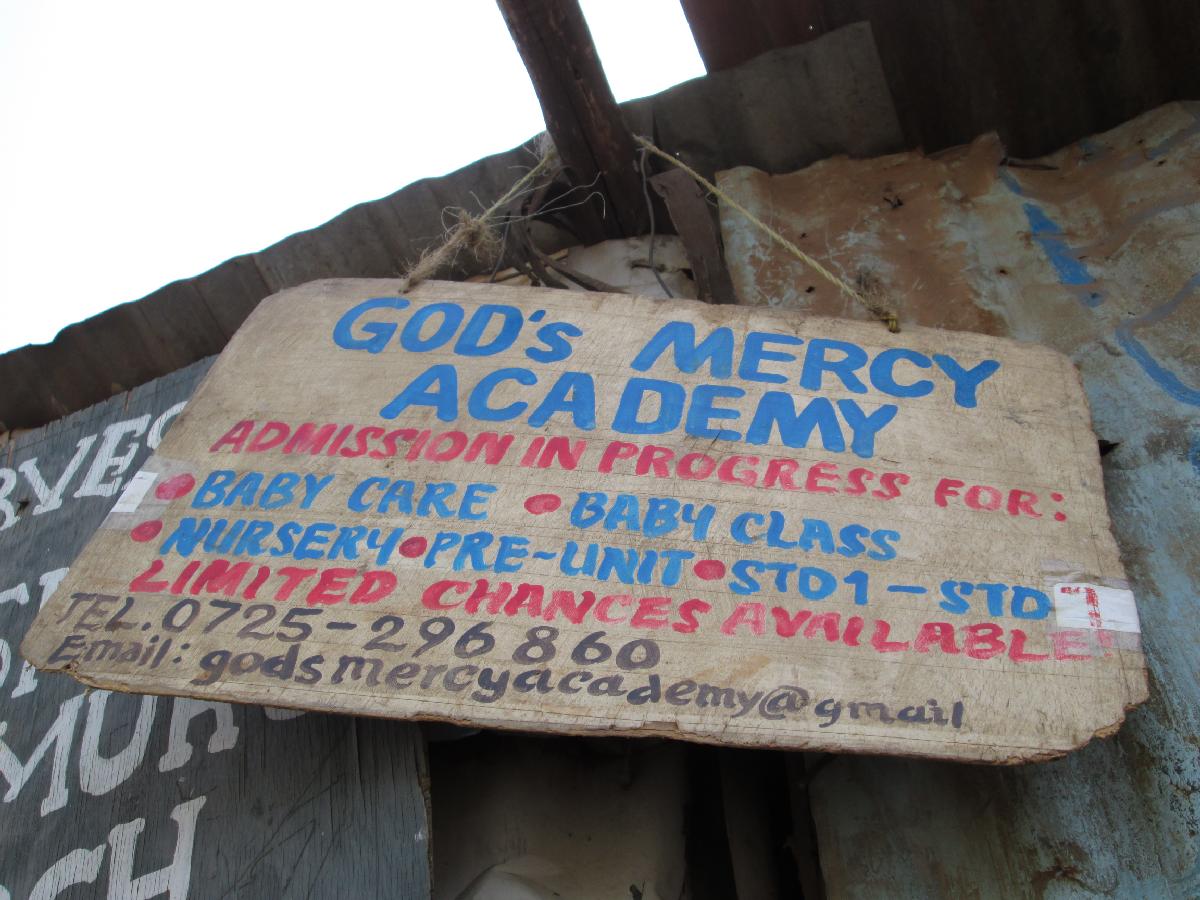 GOD's MERCY
ACADEMY
ADMISSION IN PROGRESS FOR:
• BABY CARE • BABY CLASS
• NURSERY • PRE-UNIT • STD1 - STD 7
LIMITED CHANCES AVAILABLE!
TEL. 0725-296 860
Email: godsmercyacademy@gmail